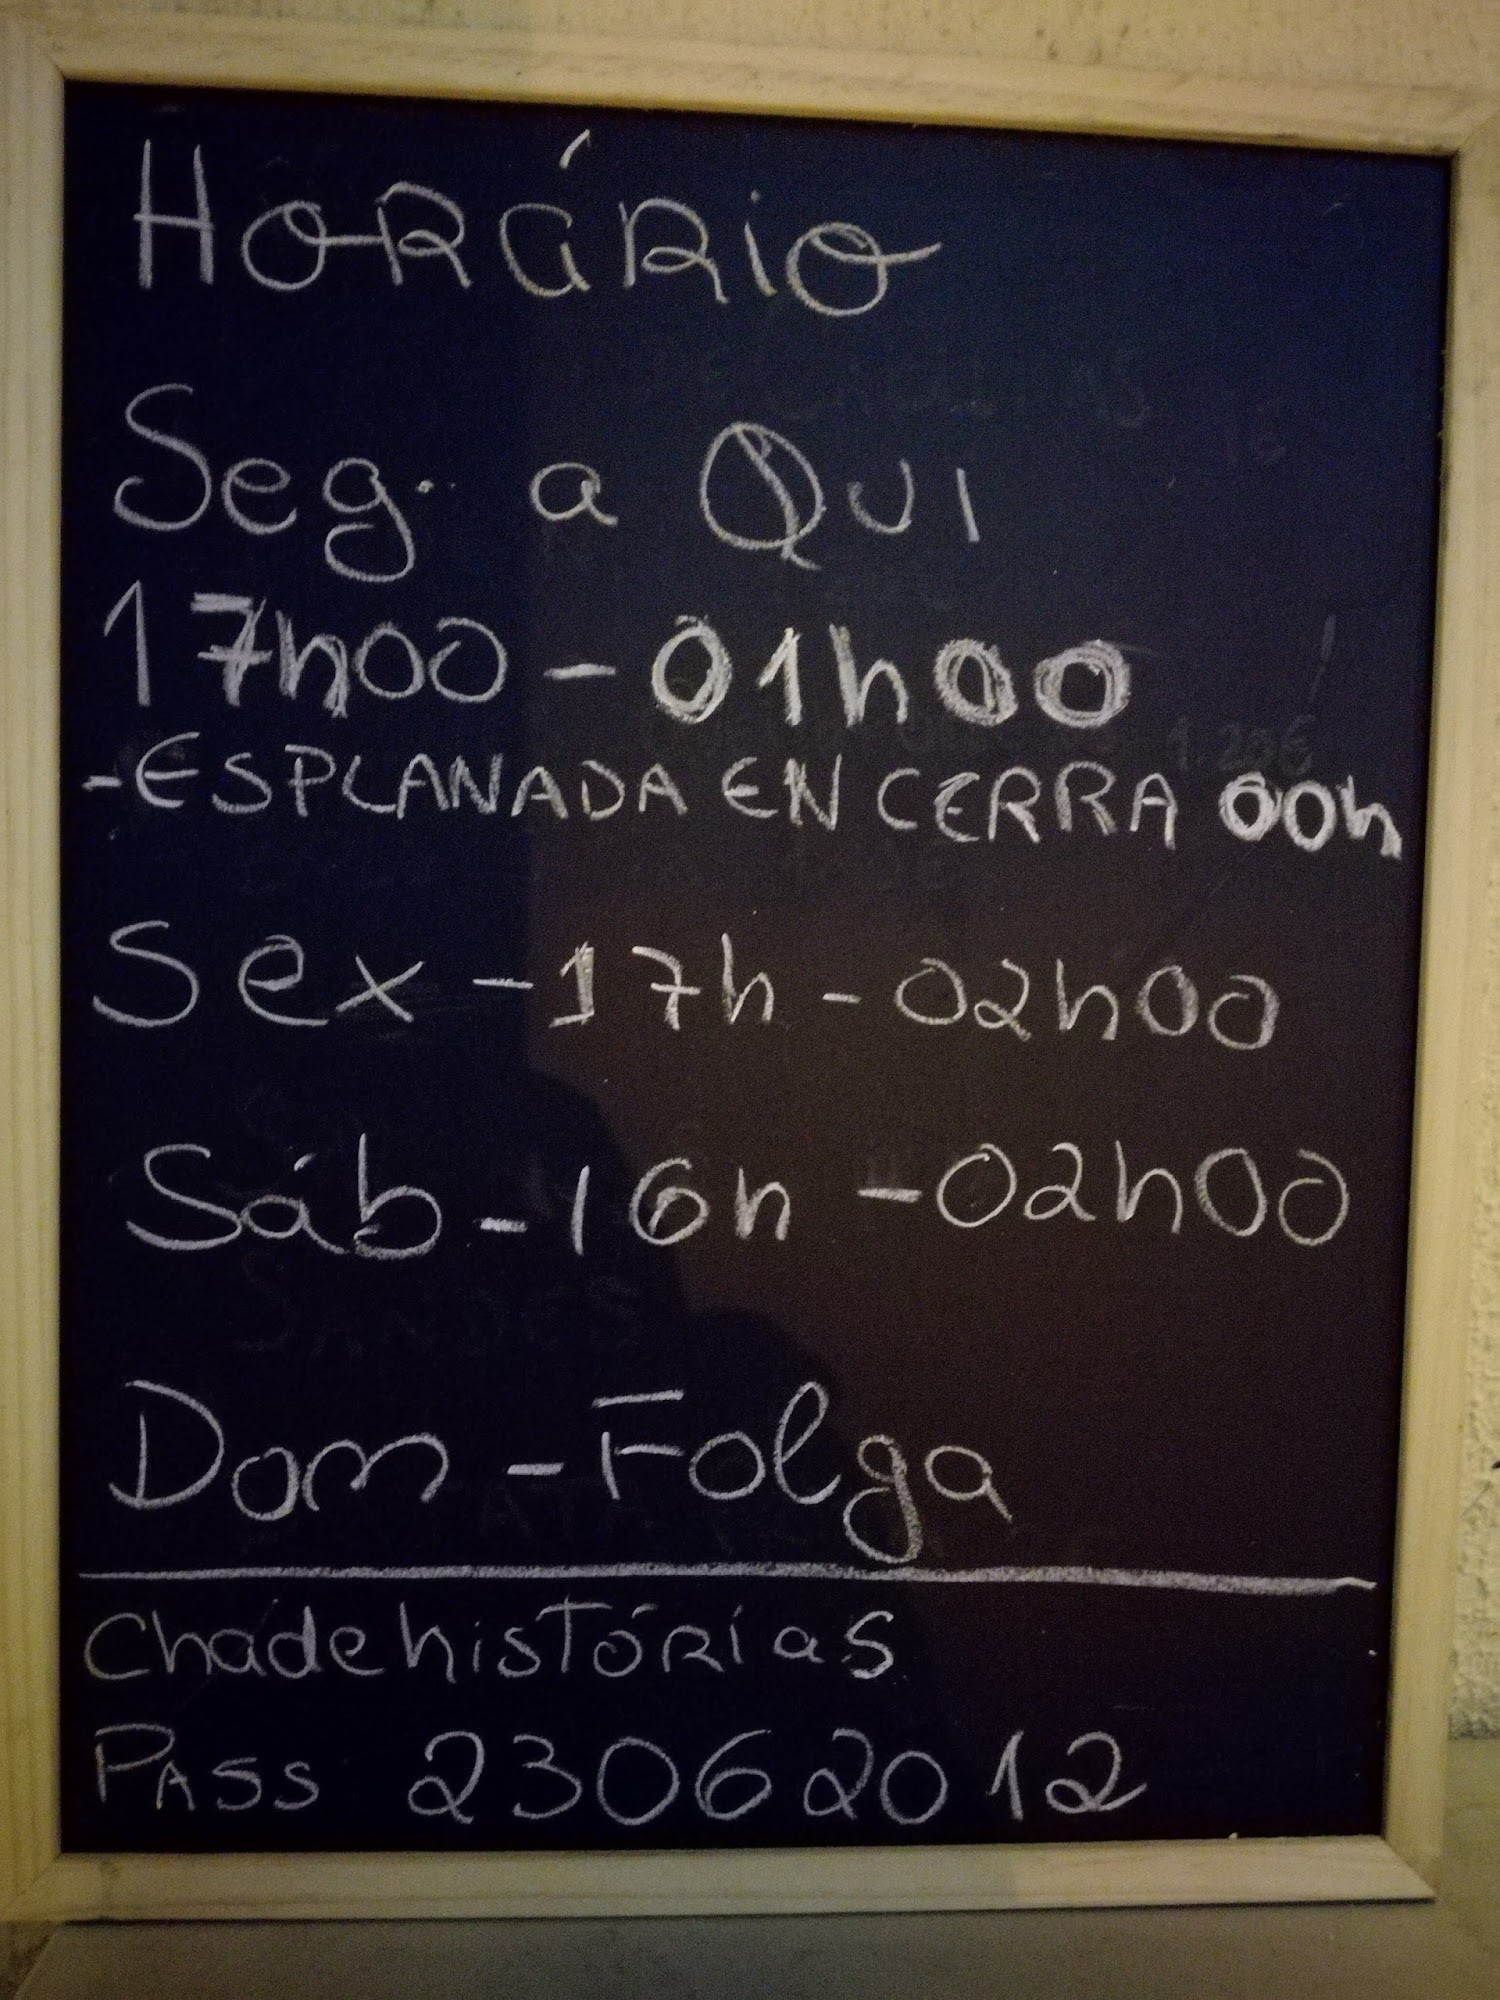 Horário
Seg. a Qui
17h00 - 01h00
- ESPLANADA ENCERRA 00h
Sex - 17h - 02h00
Sáb - 16h - 02h00
Dom - Folga
Chádehistórias
Pass 23062012